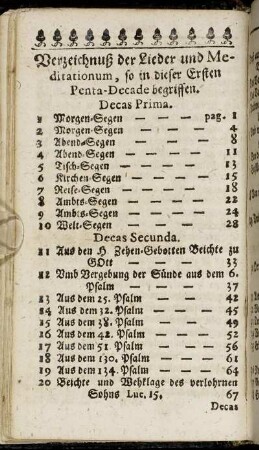 Verzeichnuß der Lieder und Me-
ditationum, so in dieser Ersten
Penta-Decade begriffen.
Decas Prima.
1 Morgen-Segen — — — pag. 1
2 Morgen-Segen — — — 4
3 Abend-Segen — — — 8
4 Abend-Segen — — — 11
5 Tisch-Segen — — — 13
6 Kirchen-Segen — — — 15
7 Reise-Segen — — — 18
8 Ambts-Segen — — — 22
9 Ambts-Segen — — — 24
10 Welt-Segen — — — 28
Decas Secunda.
11 Aus den H Zehen-Gebotten Beichte zu
GOtt — — — 33
12 Vmb Vergebung der Sünde aus dem 6.
Psalm — — — 37
13 Aus dem 25. Psalm — — — 42
14 Aus dem 32. Psalm — — — 45
15 Aus dem 38. Psalm — — — 49
16 Aus dem 42. Psalm — — — 52
17 Aus dem 51 Psalm — — — 56
18 Aus dem 130. Psalm — — — 61
19 Aus dem 134. Psalm — — — 64
20 Beichte und Wehklage des verlohrnen
Sohns Luc. 15. 67
Decas